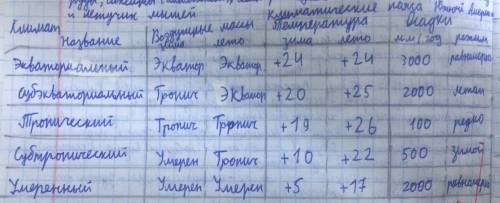 и летучих мышей Климатические пояса Южной Америки
Климат Воздушные массы Температура Осадки
Название зима лето зима лето мм/год режим
Экваториальный Экватор Экватор +24 +24 3000 равномерно
Субэкваториальный Тропич Экватор +20 +25 2000 летом
Тропический Тропич Тропич +19 +26 100 редко
Субтропический Умерен Тропич +10 +22 500 зимой
Умеренный Умерен Умерен +5 +17 2000 равномерно